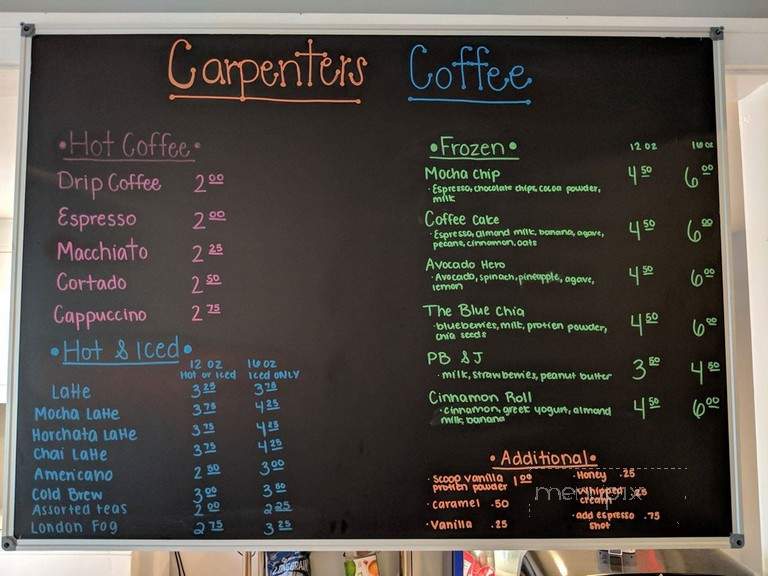 Carpenters Coffee
•Hot Coffee•
Drip Coffee 2 00
Espresso 2 00
Macchiato 2 25
Cortado 2 50
Cappuccino 2 75
•Hot & Iced•
12 oz 16 oz
Hot or Iced Iced ONLY
Latte 3 25 3 75
Mocha Latte 3 75 4 25
Horchata Latte 3 75 4 25
Chai Latte 3 75 4 25
Americano 2 50 3 00
Cold Brew 3 00 3 50
Assorted teas 2 00 2 25
London Fog 2 75 3 25
•Frozen• 12 oz 16 oz
Mocha Chip 4 50 6 00
•Espresso, chocolate chips, cocoa powder,
milk
Coffee Cake 4 50 6 00
•Espresso, almond milk, banana, agave,
pecans, cinnamon, oats
Avocado Hero 4 50 6 00
•Avocado, spinach, pineapple, agave,
lemon
The Blue Chia 4 50 6 00
•blueberries, milk, protien powder,
chia seeds
PB & J 3 50 4 50
•milk, strawberries, peanut butter
Cinnamon Roll 4 50 6 00
•cinnamon, greek yogurt, almond
milk, banana
•Additional•
•Scoop vanilla
protien powder 1 00
•Caramel .50
•Vanilla .25
•Honey .25
•Whipped
cream .25
•add espresso .75
shot
menupix